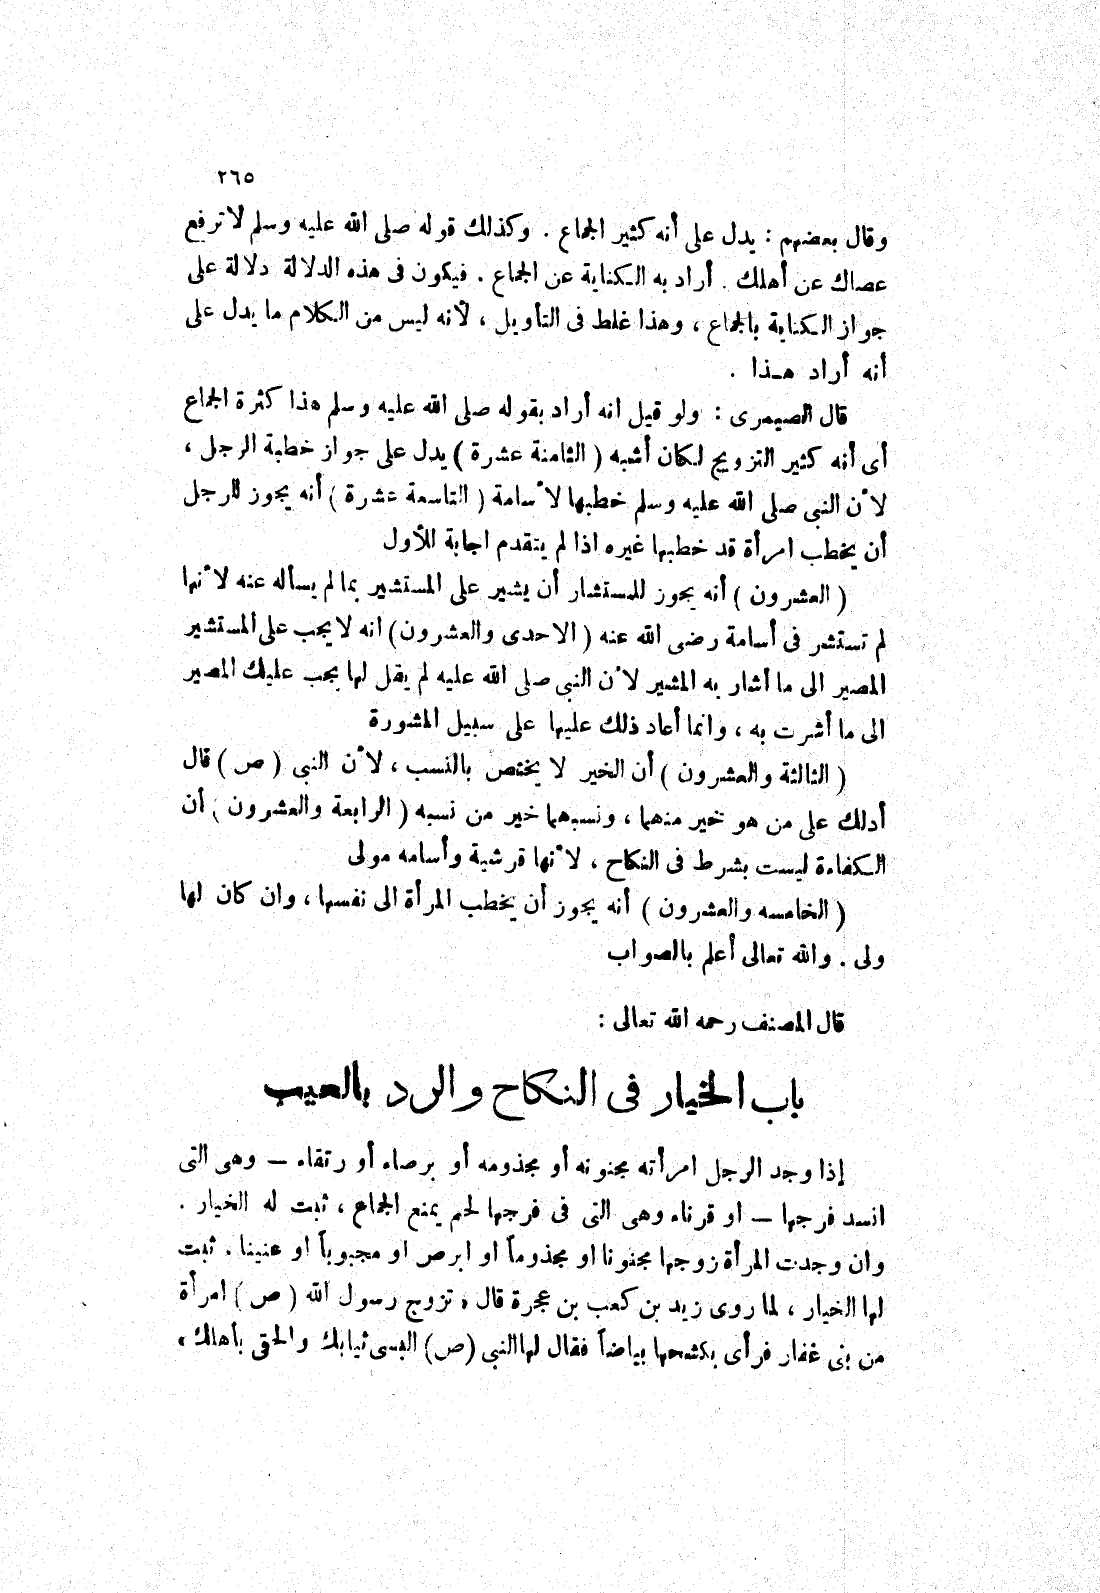 ٢٦٥
وقال بعضهم : يدل على أنه كثير الجماع . وكذلك قوله صلى الله عليه وسلم لا ترفع
عصاك عن أهلك . أراد به الكناية عن الجماع . فيكون فى هذه الدلالة دلالة على
جواز الكناية بالجماع ، وهذا غلط فى التأويل ، لأنه ليس من الكلام ما يدل على
أنه أراد هذا .
قال الصيمرى : ولو قيل انه أراد بقوله صلى الله عليه وسلم هذا كثرة الجماع
أى أنه كثير التزويج لكان أشبه ( الثامنة عشرة ) يدل على جواز خطبة الرجل ،
لأن النبى صلى الله عليه وسلم خطبها لأسامة ( التاسعة عشرة ) أنه يجوز للرجل
أن يخطب امرأة قد خطبها غيره اذا لم يتقدم اجابة للأول
( العشرون ) أنه يجوز للمستشار أن يشير على المستشير بما لم يسأله عنه لأنها
لم تستشر فى أسامة رضى الله عنه ( الاحدى والعشرون) انه لا يجب على المستشير
المصير الى ما أشار به المشير لأن النبى صلى الله عليه لم يقل لها يجب عليك المصير
الى ما أشرت به ، وانما أعاد ذلك عليها على سبيل المشورة
( الثالثة والعشرون ) أن الخير لا يختص بالنسب ، لأن النبى ( ص ) قال
أدلك على من هو خير منهما ، ونسبهما خير من نسبه ( الرابعة والعشرون ) أن
الكفاءة ليست بشرط فى النكاح ، لأنها قرشية وأسامه مولى
( الخامسه والعشرون ) أنه يجوز أن يخطب المرأة الى نفسها ، وان كان لها
ولى . والله تعالى أعلم بالصواب
قال المصنف رحمه الله تعالى :
باب الخيار فى النكاح والرد بالعيب
إذا وجد الرجل امرأته مجنونه أو مجذومه أو برصاء أو رتقاء – وهى التى
انسد فرجها – او قرناء وهى التى فى فرجها لحم يمنع الجماع ، ثبت له الخيار .
وان وجدت المرأة زوجها مجنونا او مجذوماً او ابرص او مجبوباً او عنينا ، ثبت
لها الخيار ، لما روى زيد بن كعب بن عجرة قال « تزوج رسول الله ( ص ) امرأة
من بنى غفار فرأى بكشحها بياضاً فقال لها النبى (ص) البسى ثيابك والحقى بأهلك »